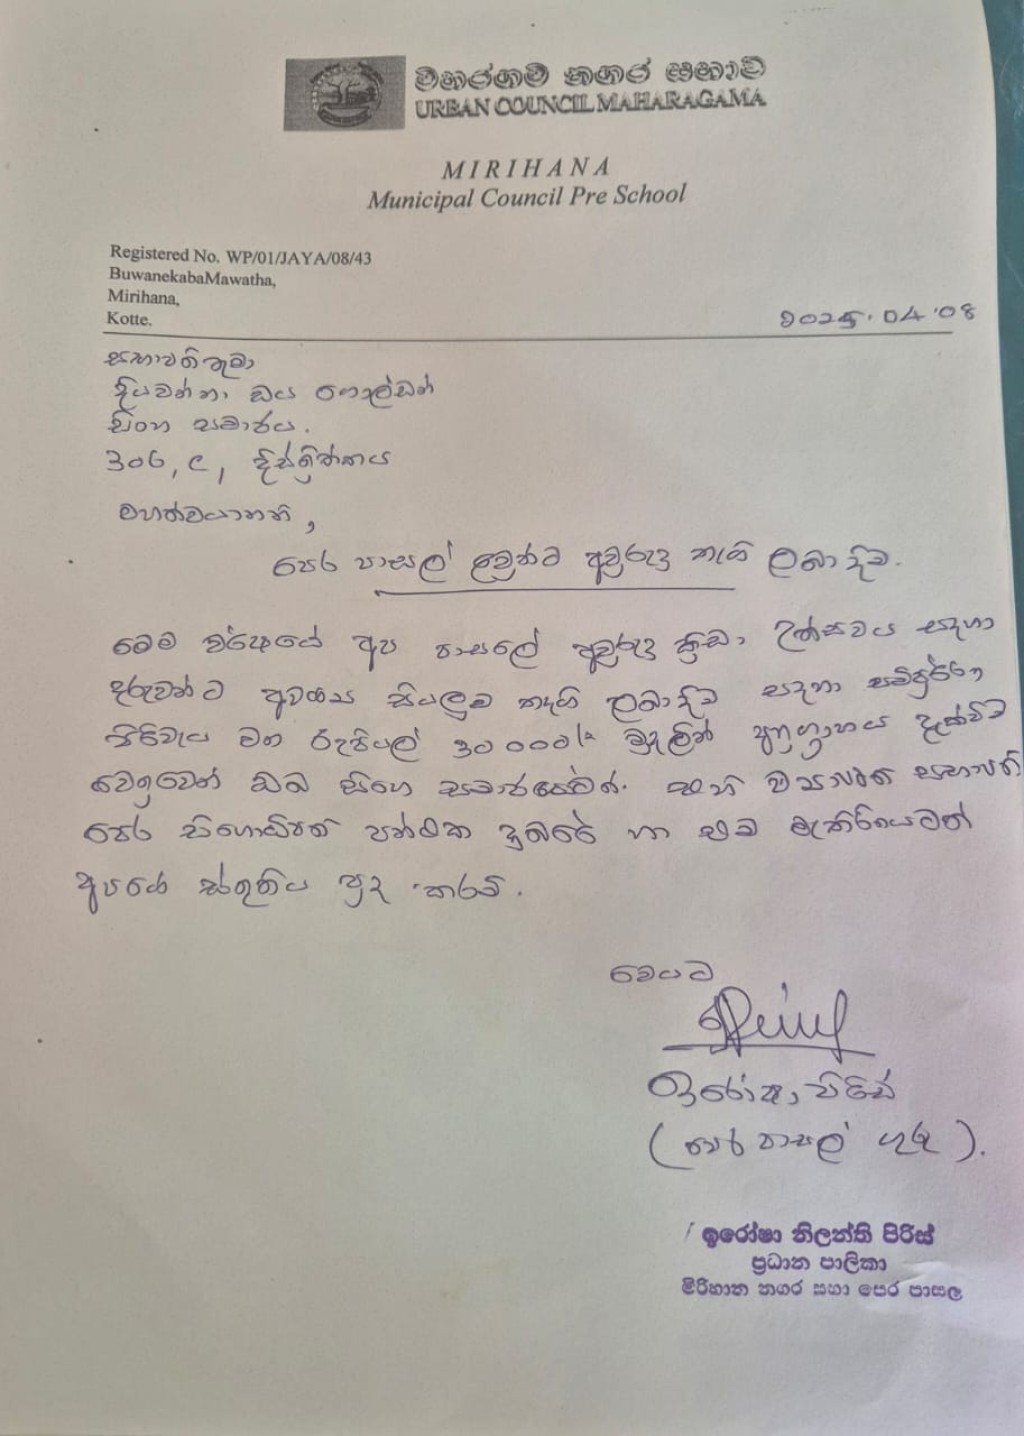 මහරගම නගර සභාව
URBAN COUNCIL MAHARAGAMA
MIRIHANA
Municipal Council Pre School
Registered No. WP/01/JAYA/08/43
BuwanekabaMawatha,
Mirihana,
Kotte.
2025.04.08
සභාපතිතුමා
දියවන්නා ඩය ගොල්ඩන්
සිංහ සමාජය.
306, ටී, දිස්ත්‍රික්කය
මහත්මයාණනි,
පෙර පාසල් ළමුන්ට අවුරුදු තෑගි ලබා දීම.
මෙම වර්ෂයේ අප පාසලේ අවුරුදු ක්‍රීඩා උත්සවය සඳහා
දරුවන්ට අවශ්‍ය සියලුම තෑගි ලබාදීම සඳහා සම්පූර්ණ
පිරිවැය වන රුපියල් 30 000/= මුදලින් අනුග්‍රහය දැක්වීම
වෙනුවෙන් ඔබ සිංහ සමාජයේත්. සභාපති
පෙර පන්ථික හා එම මැතිනියටත්
අපගේ ස්තුතිය පුද කරමි.
මෙයට
ඉරෝෂා පීරිස්
(පෙර පාසල් ගුරු).
ඉරෝෂා නිලන්ති පීරිස්
ප්‍රධාන පාලිකා
මිරිහාන නගර සභා පෙර පාසල